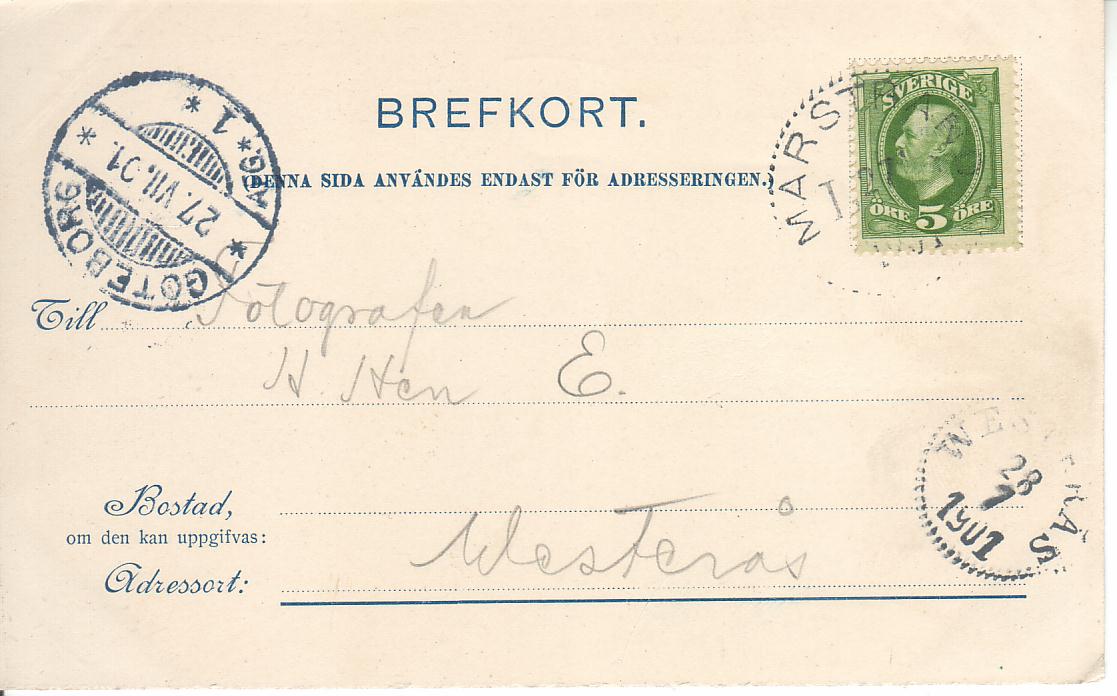 BREFKORT.
(DENNA SIDA ANVÄNDES ENDAST FÖR ADRESSERINGEN.)
GÖTEBORG 1
27.VII.01.
AVG
SVERIGE
ÖRE 5 ÖRE
MARSTRAND
27
1901
Till Fotografen
H. Hen E.
Bostad,
om den kan uppgifvas:
Adressort: Westerås
WESTERÅS
28
7
1901